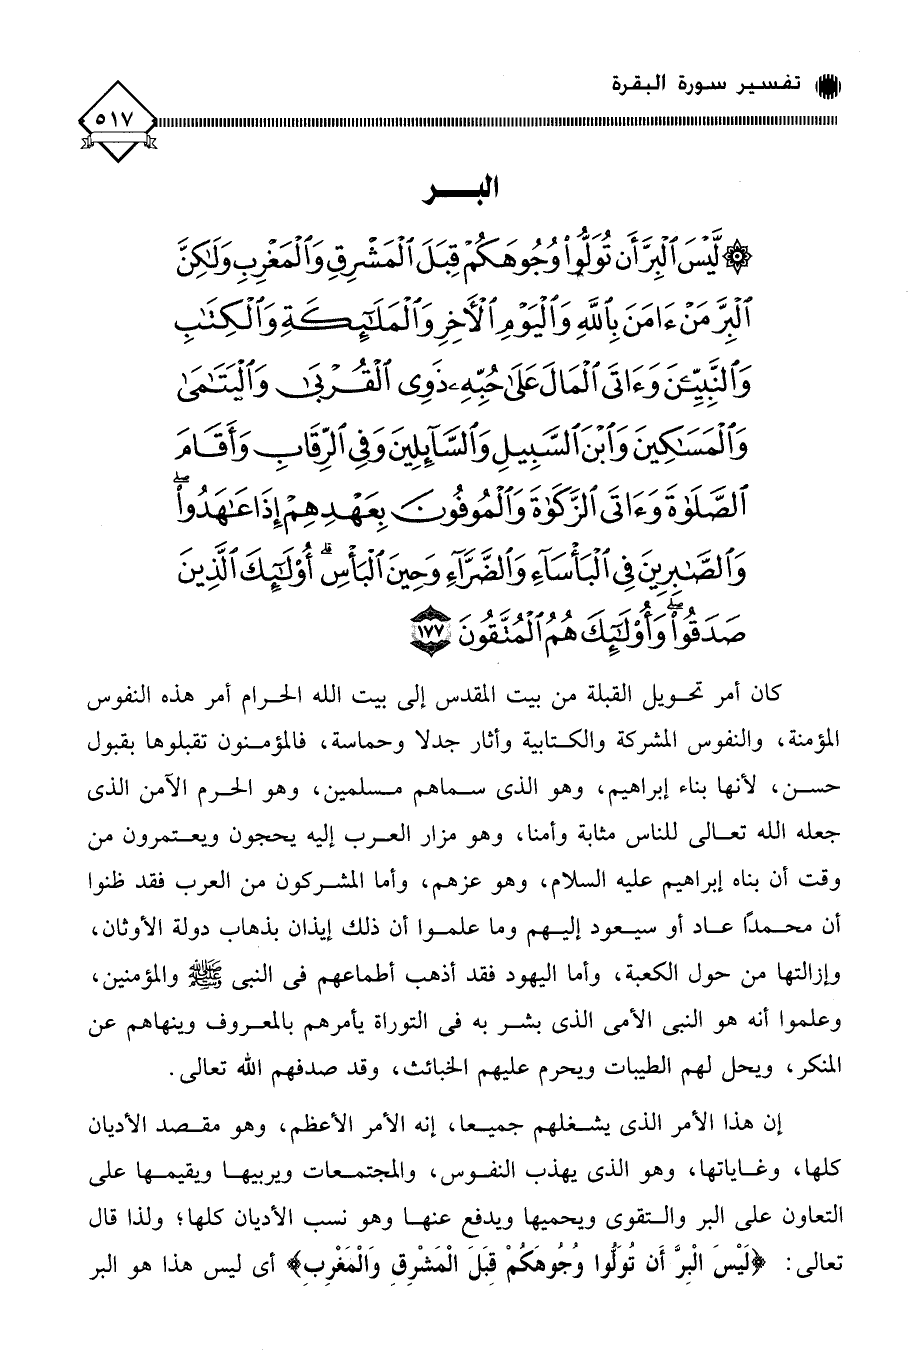 تفسير سورة البقرة
٥١٧
البر
لَّيْسَ ٱلْبِرَّ أَن تُوَلُّوا۟ وُجُوهَكُمْ قِبَلَ ٱلْمَشْرِقِ وَٱلْمَغْرِبِ وَلَٰكِنَّ
ٱلْبِرَّ مَنْ ءَامَنَ بِٱللَّهِ وَٱلْيَوْمِ ٱلْأَخِرِ وَٱلْمَلَٰٓئِكَةِ وَٱلْكِتَٰبِ
وَٱلنَّبِيِّۦنَ وَءَاتَى ٱلْمَالَ عَلَىٰ حُبِّهِۦ ذَوِى ٱلْقُرْبَىٰ وَٱلْيَتَٰمَىٰ
وَٱلْمَسَٰكِينَ وَٱبْنَ ٱلسَّبِيلِ وَٱلسَّآئِلِينَ وَفِى ٱلرِّقَابِ وَأَقَامَ
ٱلصَّلَوٰةَ وَءَاتَى ٱلزَّكَوٰةَ وَٱلْمُوفُونَ بِعَهْدِهِمْ إِذَا عَٰهَدُوا۟ۖ
وَٱلصَّٰبِرِينَ فِى ٱلْبَأْسَآءِ وَٱلضَّرَّآءِ وَحِينَ ٱلْبَأْسِۗ أُو۟لَٰٓئِكَ ٱلَّذِينَ
صَدَقُوا۟ۖ وَأُو۟لَٰٓئِكَ هُمُ ٱلْمُتَّقُونَ ١٧٧
كان أمر تحويل القبلة من بيت المقدس إلى بيت الله الحرام أمر هذه النفوس
المؤمنة، والنفوس المشركة والكتابية وأثار جدلا وحماسة، فالمؤمنون تقبلوها بقبول
حسن، لأنها بناء إبراهيم، وهو الذى سماهم مسلمين، وهو الحرم الآمن الذى
جعله الله تعالى للناس مثابة وأمنا، وهو مزار العرب إليه يحجون ويعتمرون من
وقت أن بناه إبراهيم عليه السلام، وهو عزهم، وأما المشركون من العرب فقد ظنوا
أن محمدًا عاد أو سيعود إليهم وما علموا أن ذلك إيذان بذهاب دولة الأوثان،
وإزالتها من حول الكعبة، وأما اليهود فقد أذهب أطماعهم فى النبى ﷺ والمؤمنين،
وعلموا أنه هو النبى الأمى الذى بشر به فى التوراة يأمرهم بالمعروف وينهاهم عن
المنكر، ويحل لهم الطيبات ويحرم عليهم الخبائث، وقد صدفهم الله تعالى.
إن هذا الأمر الذى يشغلهم جميعا، إنه الأمر الأعظم، وهو مقصد الأديان
كلها، وغاياتها، وهو الذى يهذب النفوس، والمجتمعات ويربيها ويقيمها على
التعاون على البر والتقوى ويحميها ويدفع عنها وهو نسب الأديان كلها؛ ولذا قال
تعالى: ﴿لَيْسَ الْبِرَّ أَن تُوَلُّوا وُجُوهَكُمْ قِبَلَ الْمَشْرِقِ وَالْمَغْرِبِ﴾ أى ليس هذا هو البر